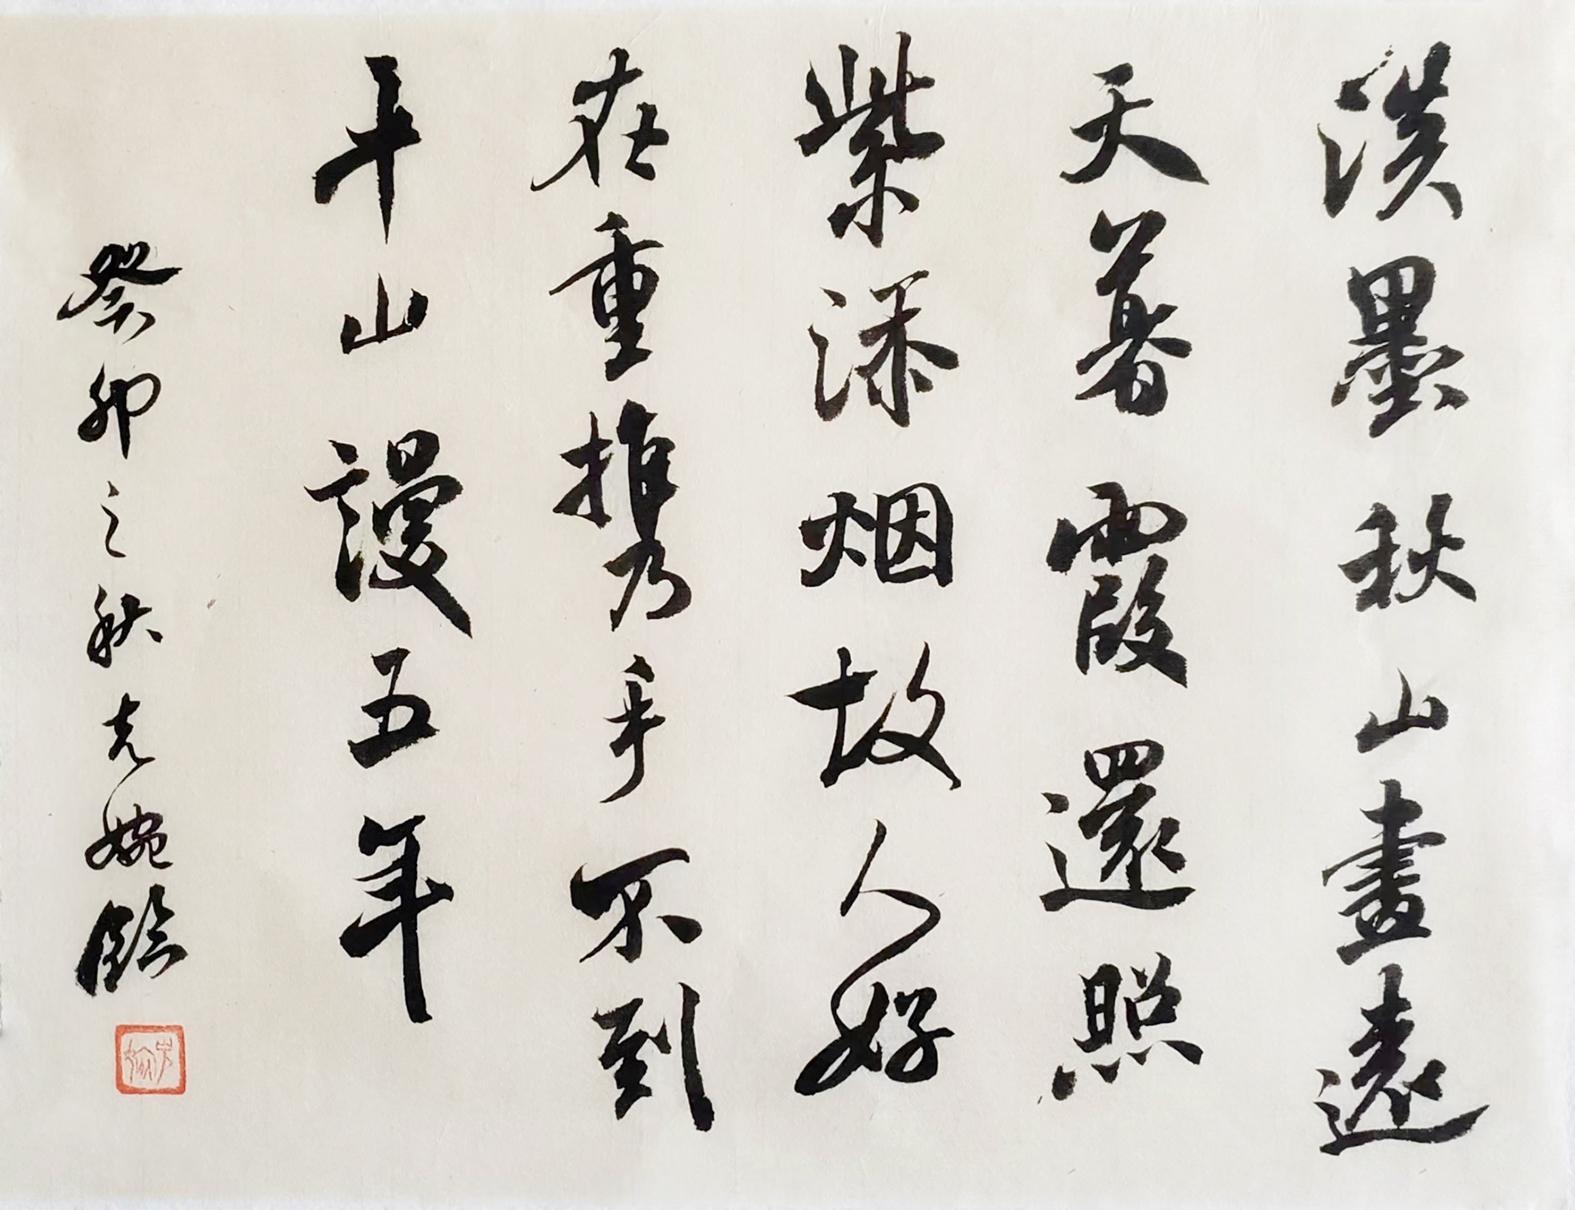 淡墨秋山畫遠
天暮霞還照
紫添烟故人好
在重携手不到
平山謾五年
癸卯之秋婉臨